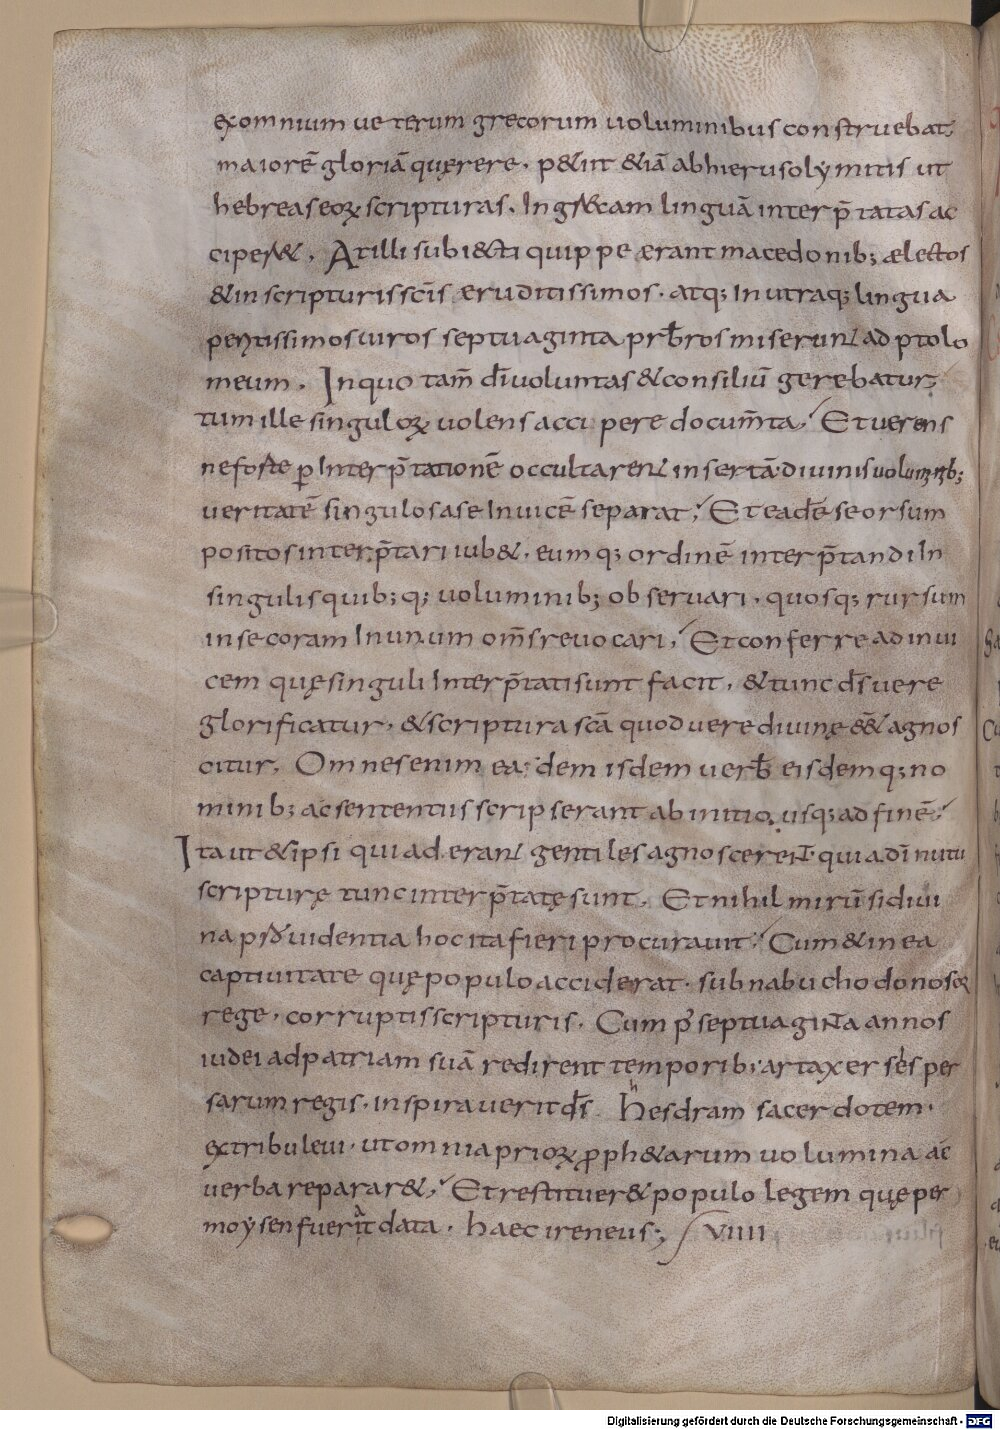 exomnium ueterum grecorum uoluminibus construebat
maiorē gloriā quęrere. p&iit &iā abhierusolẏmitis ut
hebreas eoꝝ scripturas. In gr&cam linguā interp̄tatas ac
ciper&. At illi subi&ti quippe ęrant macedonib; ælectos
&in scripturis sc̄is æruditissimos. atq; In utraq; lingua
peritissimos uiros septuaginta prb̄ros miserunt ad ptolo
meum. In quo tam̄ dī uoluntas & consiliū gerebatur;
tum ille singuloꝝ uolens accipere docum̄ta; Et uerens
ne forte ꝑ Interp̄tationē occultarent insertā diuinis uolum̄nib;
ueritatē singulos a se Inuicē separat; Et eadē seorsum
positos interp̄tari iub&. eumq; ordinē interp̄tandi In
singulis quib;q; uoluminib; obseruari. quosq; rursum
in se coram In unum om̄s reuocari; Et conferre ad inui
cem quę singuli Interp̄tati sunt facit. & tunc ds̄ uere
glorificatur. & scriptura scā quod uere diuinę ēē& agnos
citur. Omnes enim eadem isdem uerb̄ eisdemq; no
minib; ac sententiis scripserant ab initio usq; ad finē;
Ita ut & ipsi qui aderant gentiles agnoscerent. quia dī nutu
scripturę tunc interp̄tatę sunt. Et nihil mirū si diui
na prouidentia hoc ita fieri procurauit; Cum & in ea
captiuitate quę populo acciderat. sub nabuchodonosor
rege. corruptis scripturis. Cum p̄ septuaginta annos
iudei ad patriam suā redirent temporib; artaxerses per
sarum regis. inspirauerit ds̄ hesdram sacerdotem.
ex tribu leui. ut omnia prioꝝ ꝓph&arum uolumina ac
uerba reparar&; Et restituer& populo legem quę per
moẏsen fuerat data. haec ireneus; VIIII